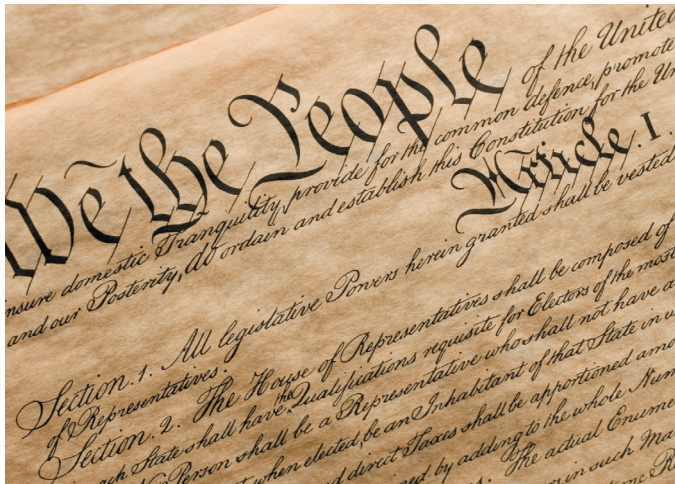 We the People of the United
insure domestic Tranquility, provide for the common defence, promote
and our Posterity, do ordain and establish this Constitution for the Un
Article. I.
Section. 1. All legislative Powers herein granted shall be vested
of Representatives.
Section. 2. The House of Representatives shall be composed of
ach State shall have the Qualifications requisite for Electors of the most
No Person shall be a Representative who shall not have a
when elected, be an Inhabitant of that State in w
d direct Taxes shall be apportioned amo
ned by adding to the whole Num
The actual Enume
in such Ma